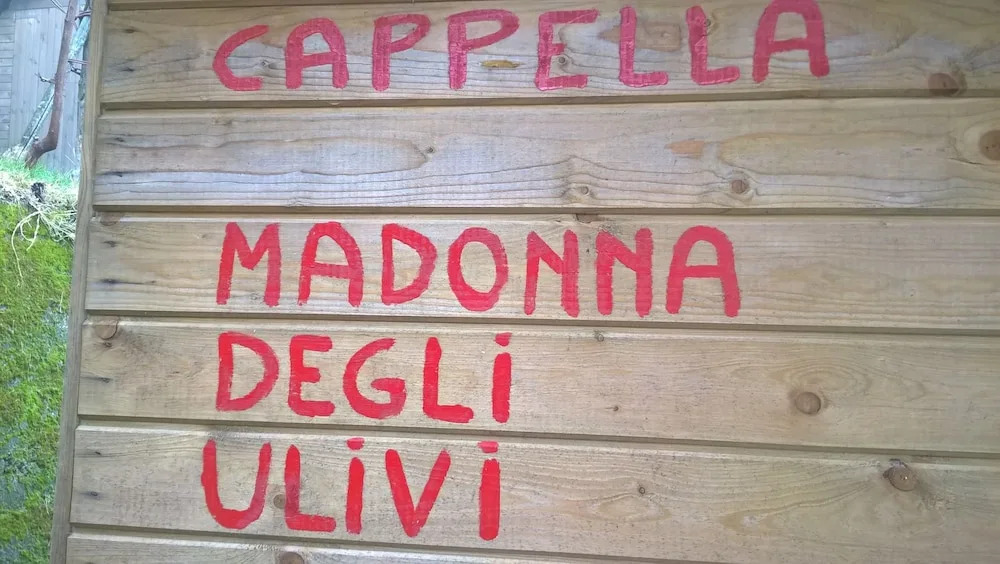 CAPPELLA
MADONNA
DEGLi
ULiVi